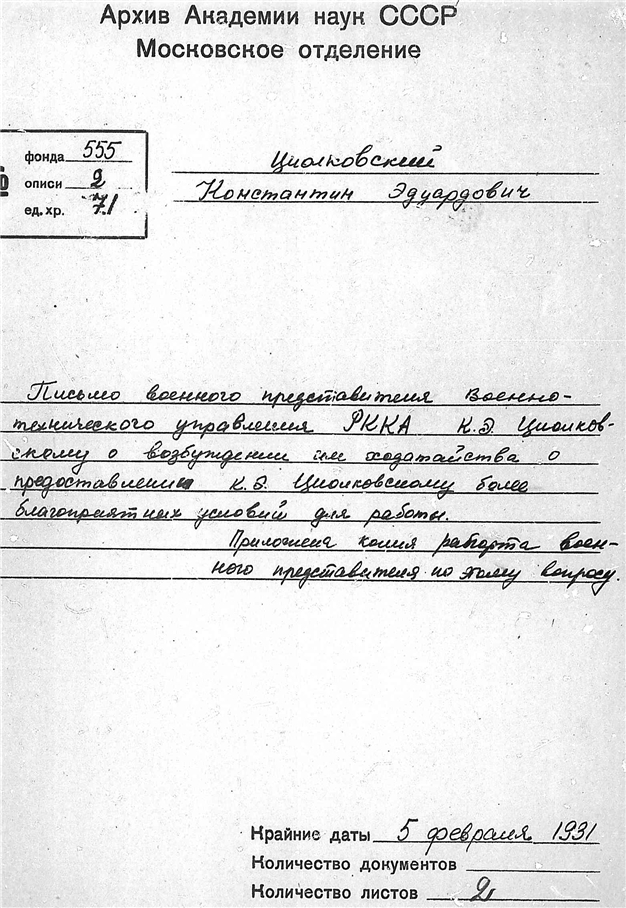 Архив Академии наук СССР
Московское отделение
фонда 555
описи 2
ед. хр. 71
Циолковский
Константин Эдуардович
Письмо военного представителя Военно-
технического управления РККА К.Э. Циолков-
скому о возбуждении им ходатайства о
предоставлении К.Э. Циолковскому более
благоприятных условий для работы.
Приложена копия рапорта воен-
ного представителя по этому вопросу.
Крайние даты 5 февраля 1931
Количество документов
Количество листов 2